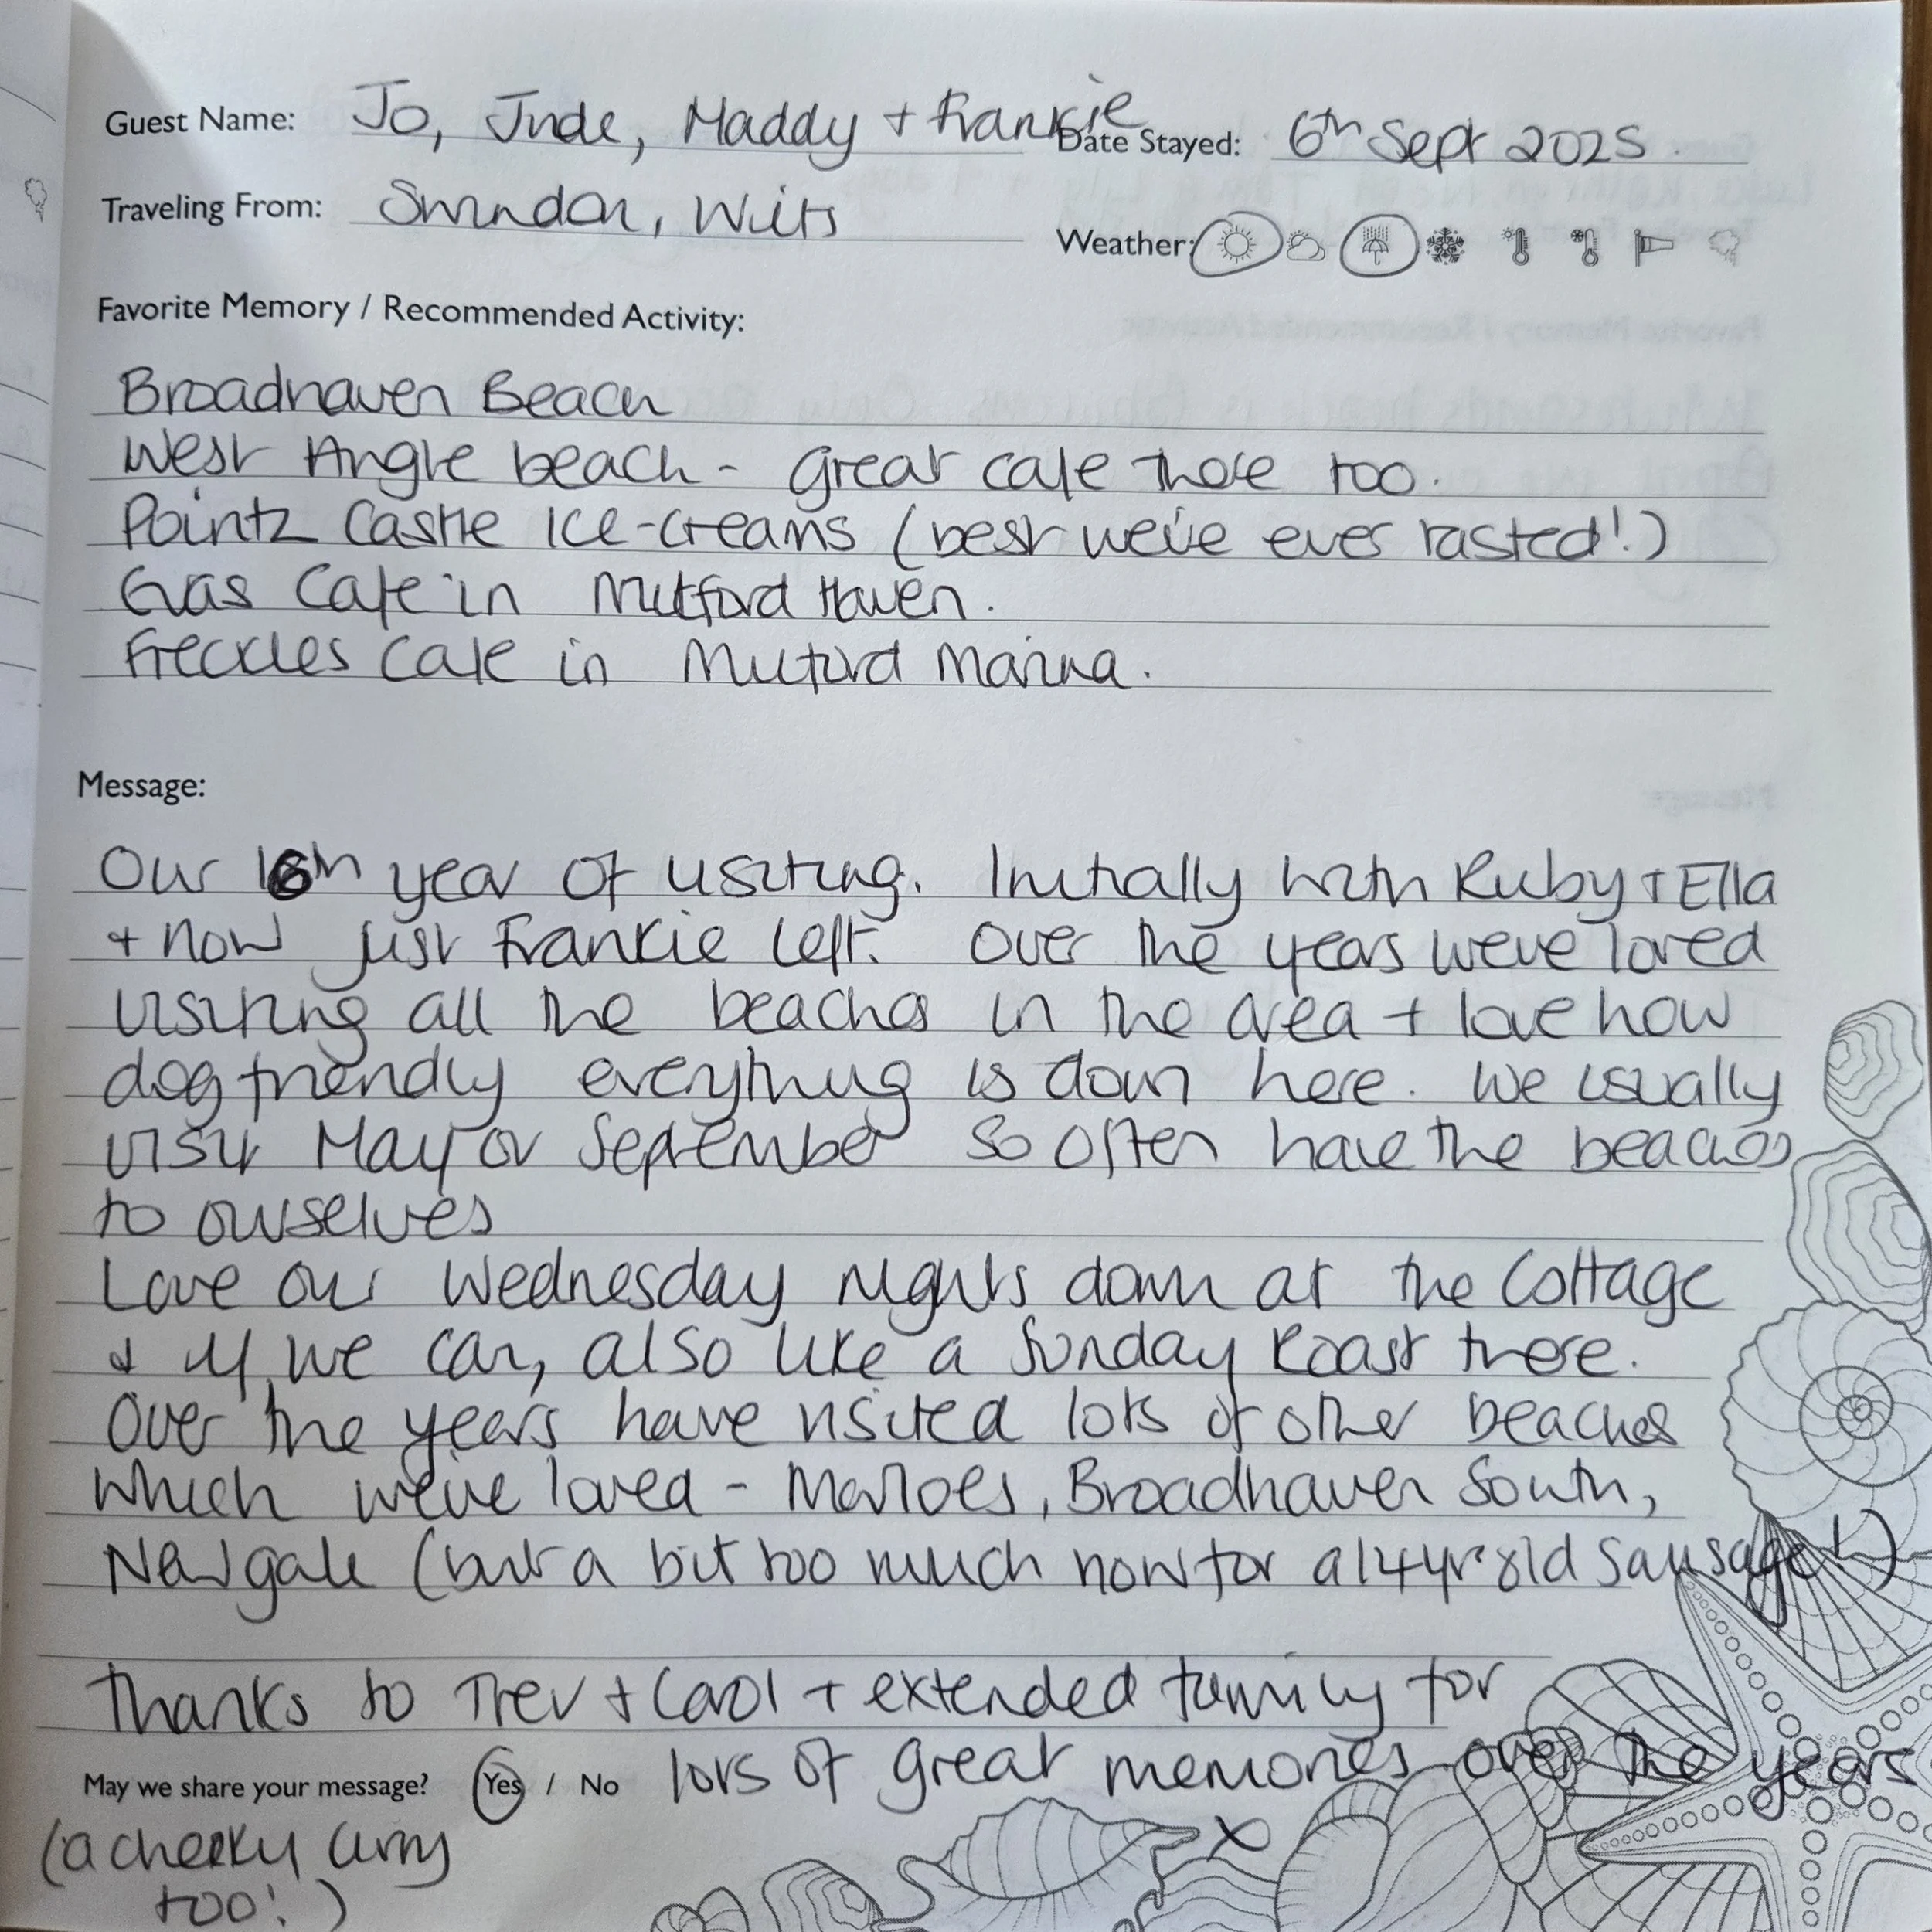 Guest Name: Jo, Jude, Maddy + Frankie
Date Stayed: 6th Sept 2025
Traveling From: Swindon, Wilts
Weather:
Favorite Memory / Recommended Activity:
Broadhaven Beach
West Angle beach - great cafe there too.
Pointz Castle Ice-Creams (best we've ever tasted!)
Gras Cafe in Milford Haven.
Freckles Cafe in Milford Marina.
Message:
Our 16th year of visiting. Initially with Ruby + Ella
+ now just Frankie left. Over the years we've loved
visiting all the beaches in the area + love how
dog friendly everything is down here. We usually
visit May or September so often have the beaches
to ourselves
Love our Wednesday nights down at the Cottage
+ if we can, also like a Sunday Roast there.
Over the years have visited lots of other beaches
which we've loved - Marloes, Broadhaven South,
Newgale (but a bit too much now for a 14yr old sausage!)
Thanks to Trev + Carol + extended family for
lots of great memories over the years
x
May we share your message? Yes / No
(a cheeky curry
too!)